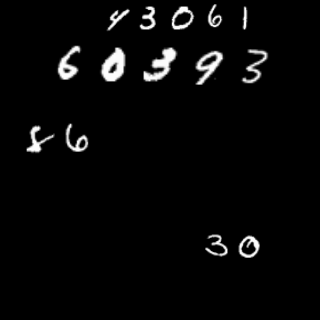 43061
60393
86
30